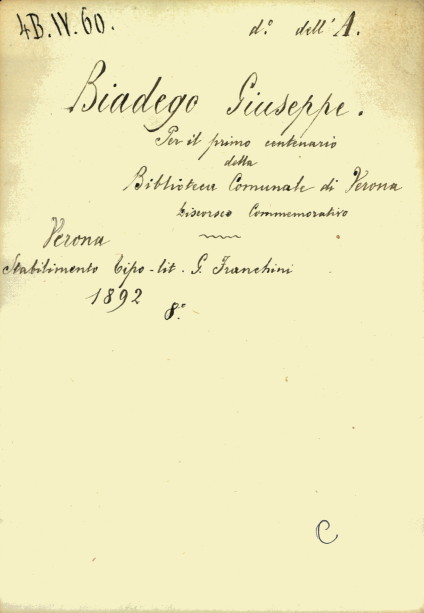 4B.IV.60.
d.º dell'A.
Biadego Giuseppe.
Per il primo centenario
della
Biblioteca Comunale di Verona
Discorso Commemorativo
Verona
Stabilimento Tipo-lit. G. Franchini
1892
8.º
C